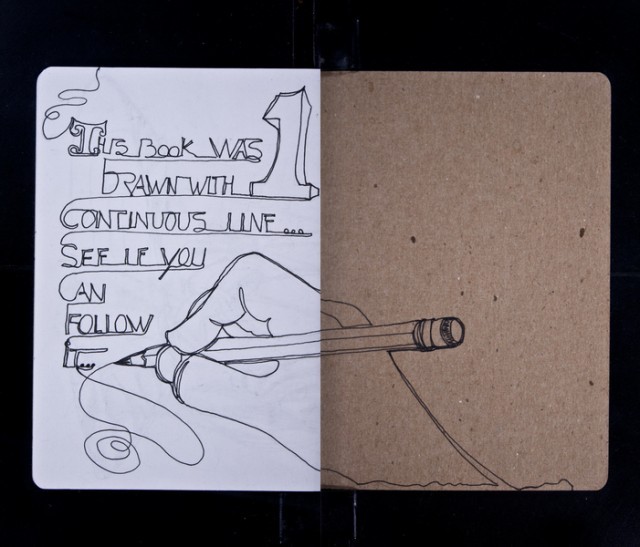 THIS BOOK WAS 1
DRAWN WITH
CONTINUOUS LINE...
SEE IF YOU
CAN
FOLLOW
IT...